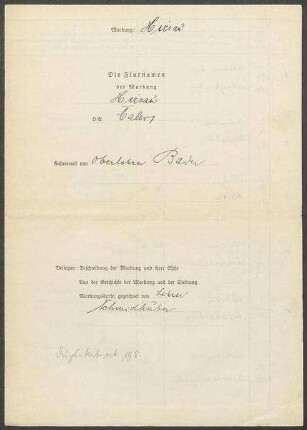 Markung: Hirsau
Die Flurnamen
der Markung
Hirsau
OA. Calw
Gesammelt von Oberlehrer Bader
Beilagen: Beschreibung der Markung und ihrer Lage
Aus der Geschichte der Markung und der Siedlung
Markungskarte, gezeichnet von Lehrer
Schmidhuber